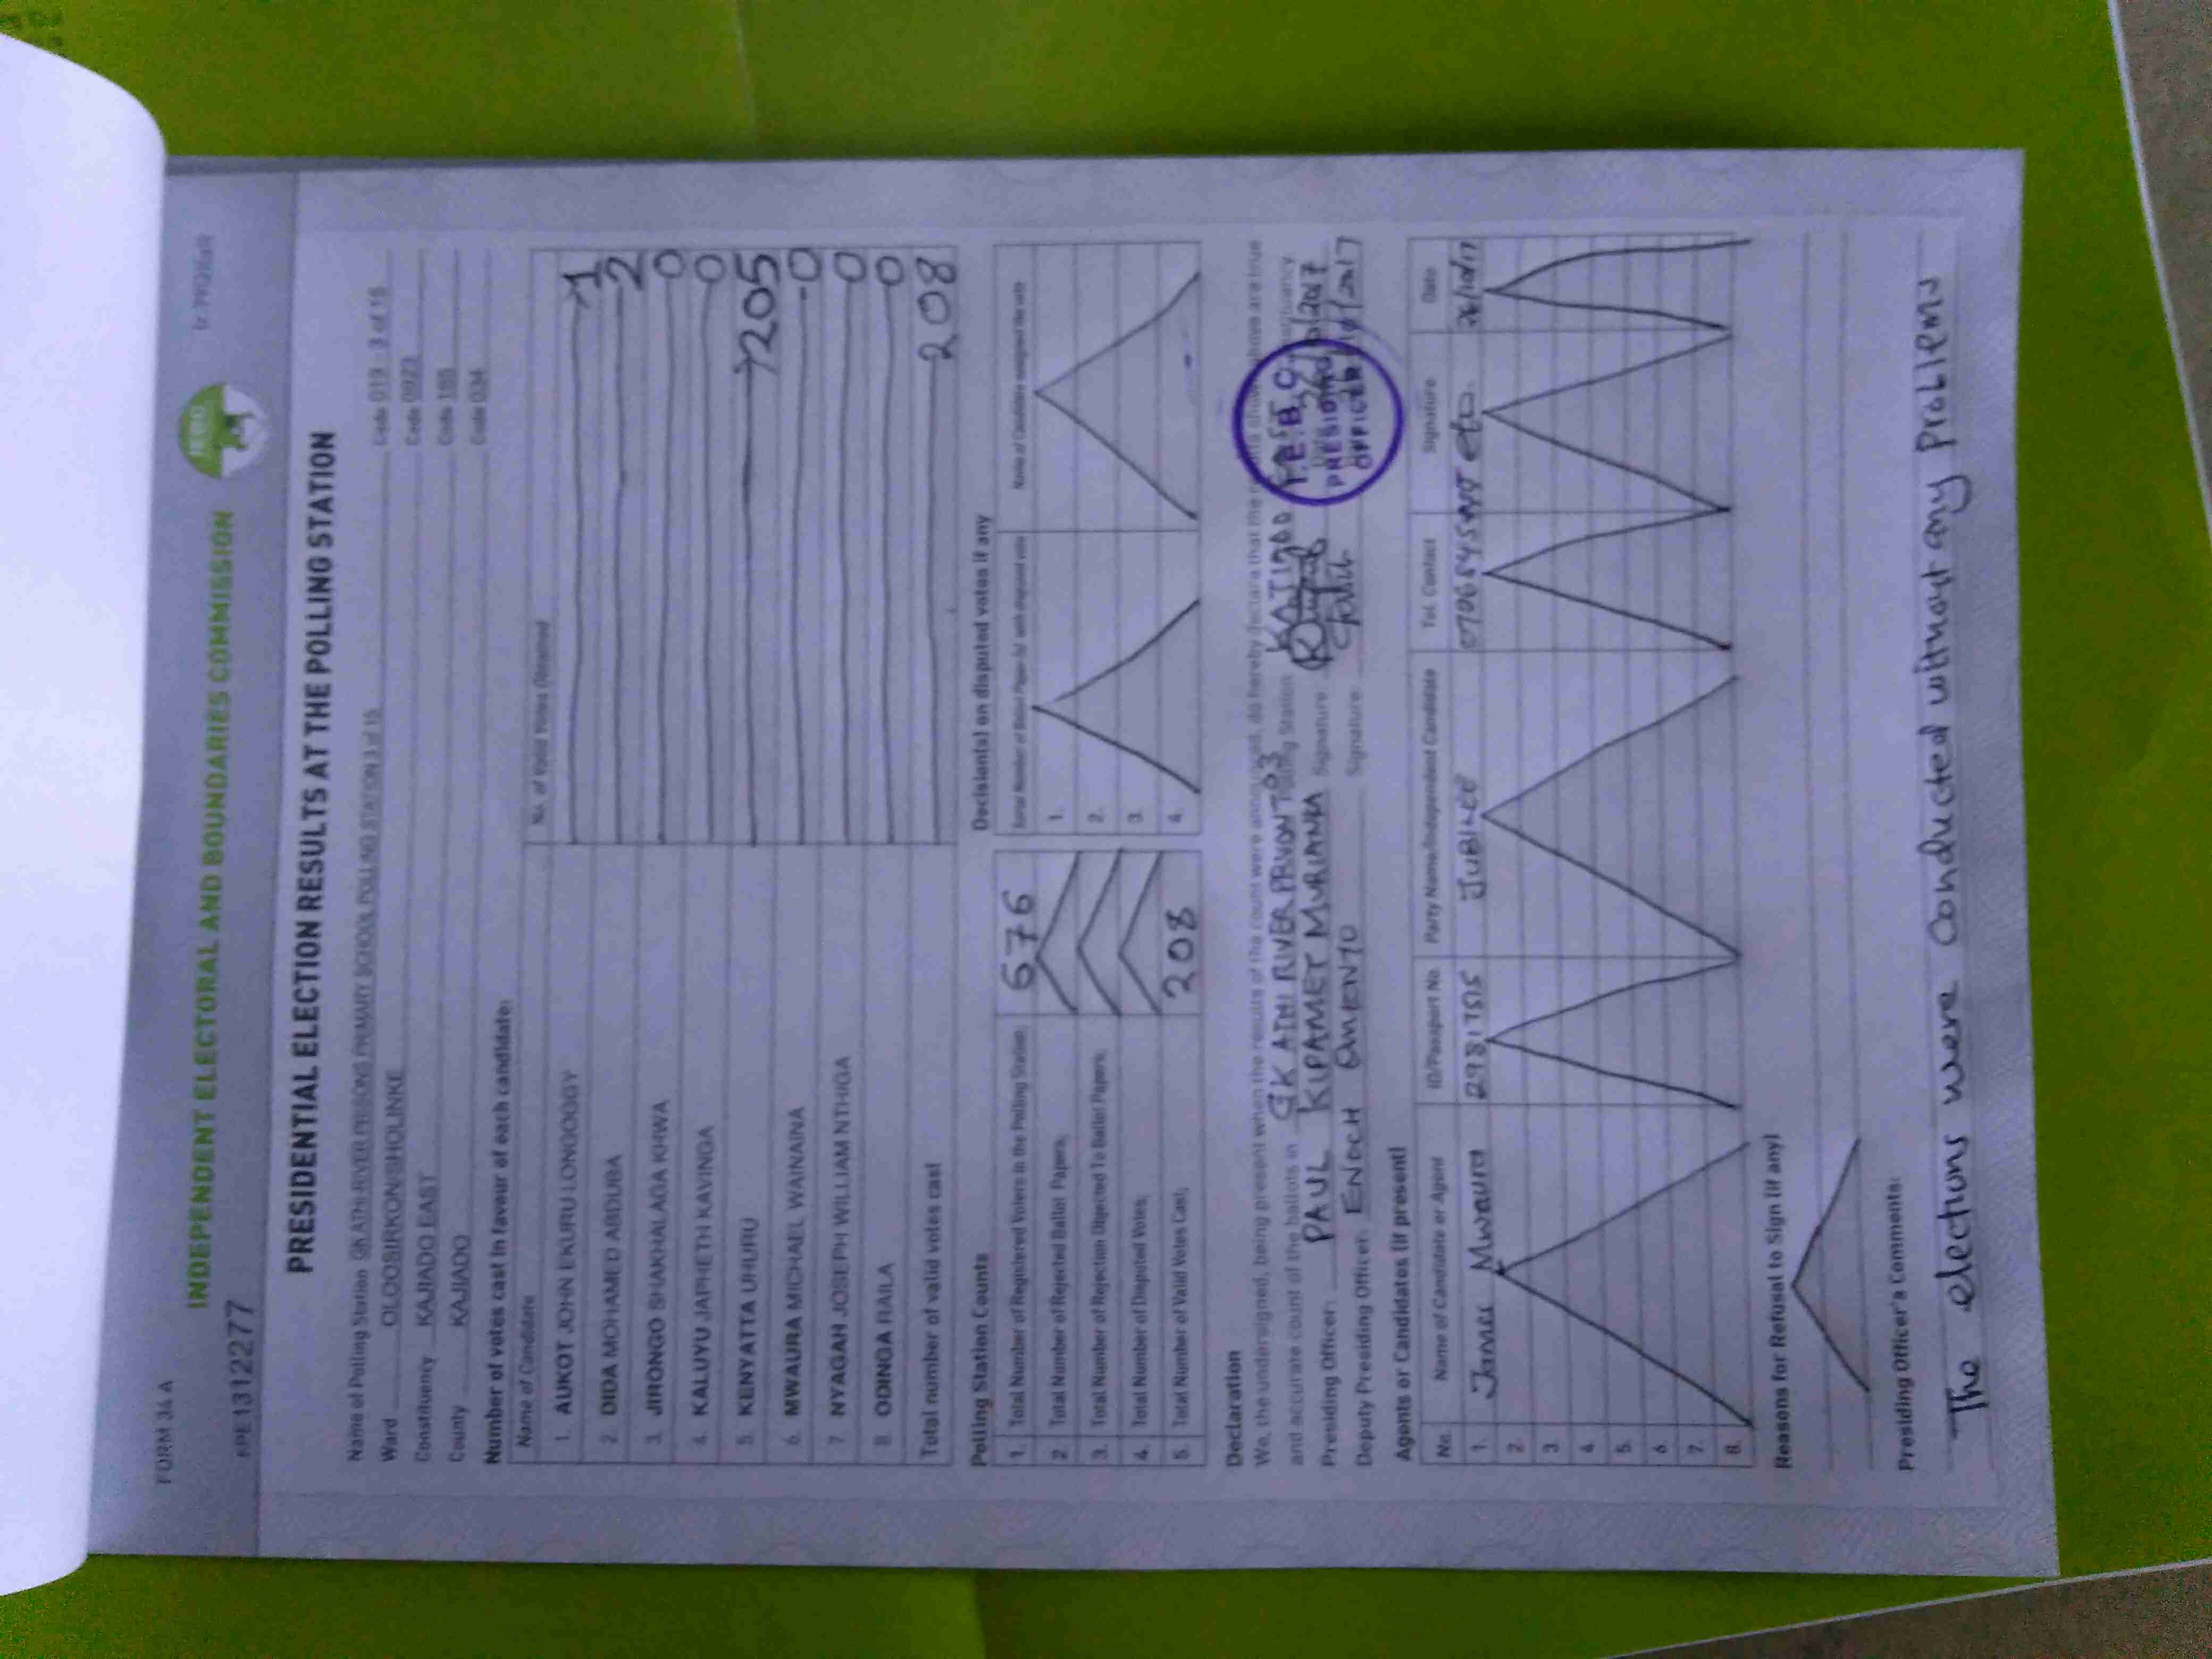 FORM 34 A
INDEPENDENT ELECTORAL AND BOUNDARIES COMMISSION
IEBC
1312277
PRESIDENTIAL ELECTION RESULTS AT THE POLLING STATION
Name of Polling Station GK ATHI-RIVER PRISONS PRIMARY SCHOOL POLLING STATION 3 of 15 Code 019 - 3 of 15
Ward OLOOSIRKON/SHOLINKE Code 0923
Constituency KAJIADO EAST Code 185
County KAJIADO Code 034
Number of votes cast in favour of each candidate:
Name of Candidate No. of Valid Votes Obtained
1. AUKOT JOHN EKURU LONGOGGY 1
2. DIDA MOHAMED ABDUBA 2
3. JIRONGO SHAKHALAGA KHWA 0
4. KALUYU JAPHETH KAVINGA 0
5. KENYATTA UHURU 205
6. MWAURA MICHAEL WAINAINA 0
7. NYAGAH JOSEPH WILLIAM NTHIGA 0
8. ODINGA RAILA 0
Total number of valid votes cast 208
Polling Station Counts
1. Total Number of Registered Voters in the Polling Station: 676
2. Total Number of Rejected Ballot Papers:
3. Total Number of Rejection Objected To Ballot Papers:
4. Total Number of Disputed Votes:
5. Total Number of Valid Votes Cast: 208
Decision(s) on disputed votes if any
Serial Number of Ballot Paper(s) with disputed vote Name of Candidate
1.
2.
3.
4.
Declaration
We, the undersigned, being present when the results of the count were announced, do hereby declare that the results shown above are true
and accurate count of the ballots in GK ATHI RIVER 03 Polling Station KAJIADO
Presiding Officer: PAUL KIPAMET MURIANKA Signature
Deputy Presiding Officer: ENOCH Signature
I.E.B.C.
PRESIDING
OFFICER
Agents or Candidates (if present)
No. Name of Candidate or Agent ID/Passport No. Party Name/Independent Candidate Tel. Contact Signature Date
1. Mwaura JUBILEE 26/10/17
2.
3.
4.
5.
6.
7.
8.
Reasons for Refusal to Sign (if any)
Presiding Officer's Comments:
The elections were conducted without any problems